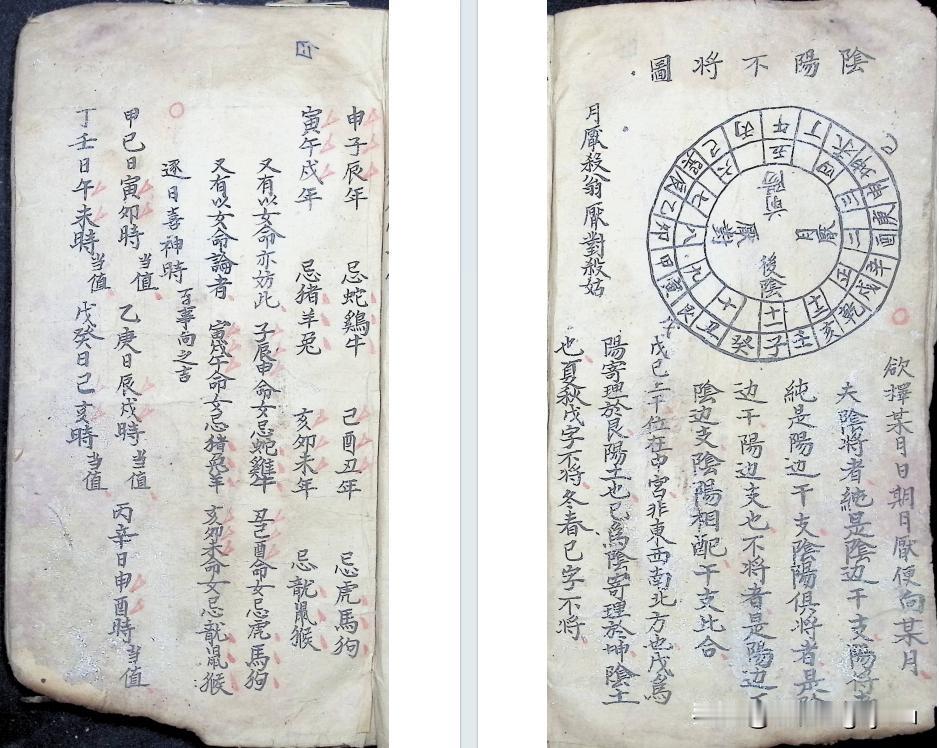 陰陽不將圖
午 丁 未 坤 申 庚 酉 辛 戌 乾 亥 壬 子 癸 丑 艮 寅 甲 卯 乙 辰 巽 巳 丙
五 四 三 二 正 十二 十一 十 九 八 七 六
前陽
月厭
後陰
厭對
欲擇某月日期月厭便向某月
夫陰將者純是陰边干支陽將
純是陽边干支陰陽俱將者是
边干陽边支也不將者是陽边
陰边支陰陽相配干支比合
戊己二干位在中宮非東西南北方也戊爲
陽寄理於艮陽土也己爲陰寄理於坤陰土
也夏秋戊字不將冬春己字不將
月厭殺翁厭對殺姑
申子辰年 忌蛇鷄牛 己酉丑年 忌虎馬狗
寅午戌年 忌猪羊兎 亥卯未年 忌龍鼠猴
又有以女命亦妨此 子辰申命女忌蛇雞牛 丑己酉命女忌虎馬狗
又有以女命論者 寅戌午命女忌猪兔羊 亥卯未命女忌龍鼠猴
逐日喜神時 百事向之吉
甲己日寅卯時当值 乙庚日辰戌時当值 丙辛日申酉時当值
丁壬日午未時当值 戊癸日己亥時当值